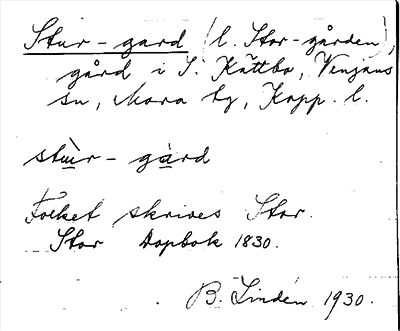 Stur-gard (l. Stor-gården),
gård i S. Kättbo, Venjans
sn, Mora tg, Kopp. l.
stùr-gàrd
Folket skrives Stor.
Stor Dopbok 1830.
B. Lindén 1930.